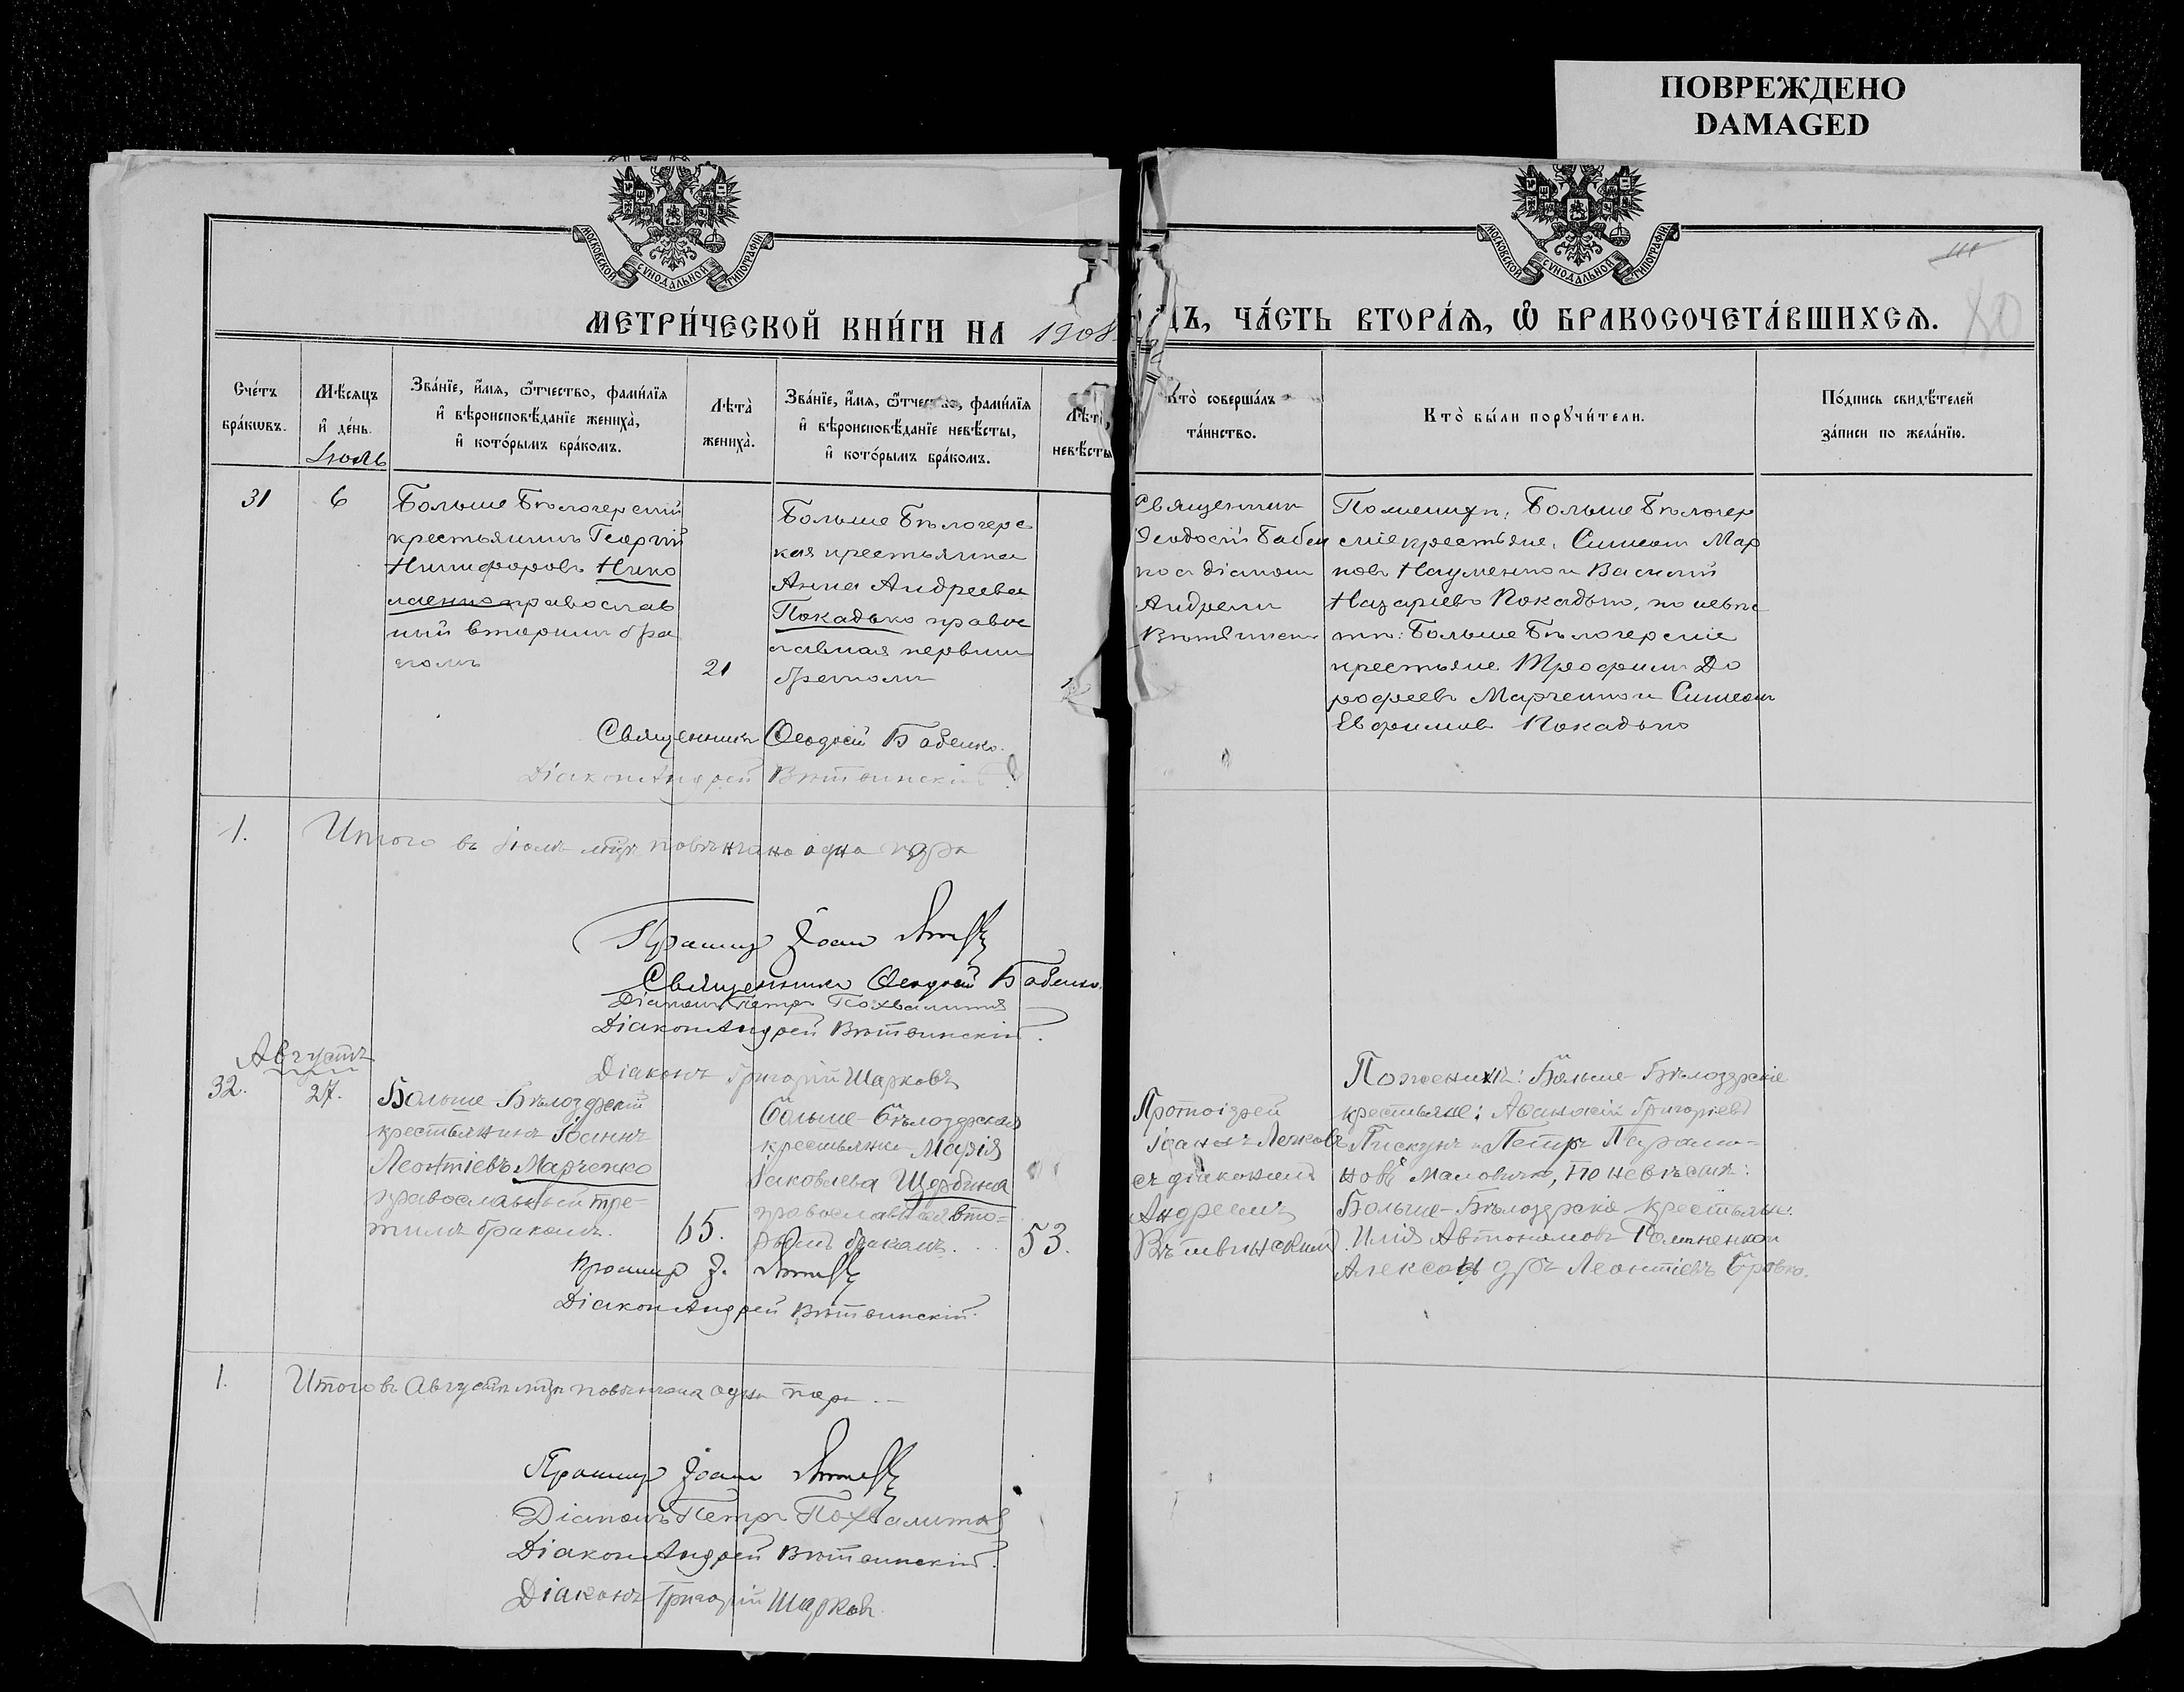 ПОВРЕЖДЕНО
DAMAGED
МОСКОВСКОЙ СѴНОДАЛЬНОЙ ТИПОГРАФІИ
МОСКОВСКОЙ СѴНОДАЛЬНОЙ ТИПОГРАФІИ
МЕТРИ́ЧЕСКОЙ КНИ́ГИ НА 1908
ДЪ, ЧА́СТЬ ВТОРА́Ѧ, Ѽ БРАКОСОЧЕТА́ВШИХСѦ.
Сче́тъ
бра́кѡвъ.
Мѣ́сяцъ
и҆ де́нь.
Іюль
Зва́нїе, и҆́мя, ѻ҆́тчество, фами́лїя
и҆ вѣроисповѣ́данїе жениха̀,
и҆ кото́рымъ бра́комъ.
Лѣта̀
жениха̀.
Зва́нїе, и҆́мя, ѻ҆́тчество, фами́лїя
и҆ вѣроисповѣ́данїе невѣ́сты,
и҆ кото́рымъ бра́комъ.
Лѣта̀
невѣ́сты
Кто̀ соверша́лъ
та́инство.
Кто̀ бы́ли порꙋчи́тели.
По́дпись свидѣ́телей
за́писи по жела́нїю.
31
6
Больше Бѣлозерскій
крестьянинъ Георгій
Никифоровъ Нико
лаенко православ
ный вторымъ бра
комъ
21
Больше Бѣлозерс
кая крестьянка
Анна Андреева
Покадько правос
лавная первымъ
бракомъ
Священник
Ѳеодосій Бабен
ко с діаконом
Андреем
Вѣтвинским
По женихѣ: Больше Бѣлозер
скіе крестьяне, Симеон Мар
ковъ Науменко и Василій
Назаріевъ Покадько, по невѣс
тѣ: Больше Бѣлозерскіе
крестьяне Трофимъ До
рофеевъ Марченко и Симеон
Евфимов Покадько
Священникъ Ѳеодосій Бабенко.
Діаконъ Андрей Вѣтвинскій
1.
Итого въ Іюлѣ мцѣ повѣнчано одна пара
Протоіер Іоан
Священникъ Ѳеодосій Бабенко.
Діаконъ Петръ Похвалитов
Діаконъ Андрей Вѣтвинскій.
Діаконъ Григорій Шарковъ
Августъ
32.
27.
Больше-Бѣлозерскій
крестьянинъ Іоаннъ
Леонтіевъ Марченко
православный тре-
тимъ бракомъ.
65.
Больше-Бѣлозерская
крестьянка Марія
Іаковлева Щербина
православная вто-
рымъ бракомъ.
53.
Протоіерей
Іоаннъ Ленковъ
съ діакономъ
Андреемъ
Вѣтвинскимъ
По женихѣ: Больше-Бѣлозерскіе
крестьяне: Аѳанасій Григоріевъ
Пискунъ и Петръ Парамо-
новъ Маловичко, по невѣстѣ:
Больше-Бѣлозерскіе крестьяне:
Илія Автономовъ Романенко и
Александръ Леонтіевъ Бровко.
Протоіер І.
Діаконъ Андрей Вѣтвинскій.
1.
Итого въ Августѣ мцѣ повѣнчана одна пара.
Протоіер Іоан
Діаконъ Петръ Похвалитов
Діаконъ Андрей Вѣтвинскій.
Діаконъ Григорій Шарковъ